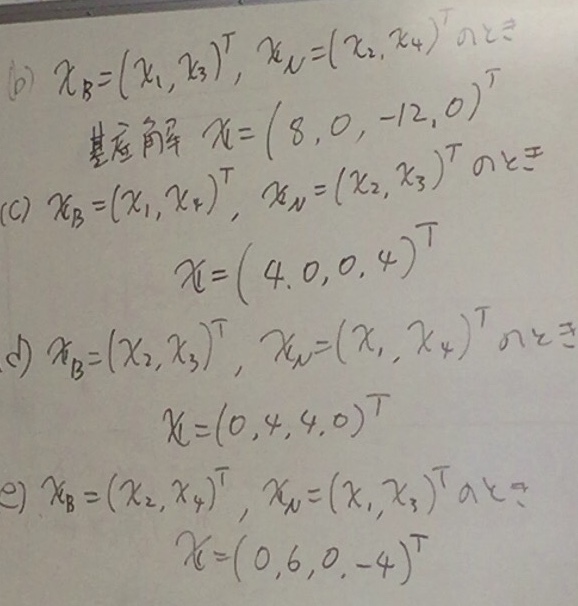 (b) x_B=(x_1,x_3)^T, x_N=(x_2,x_4)^Tのとき
基底解 x=(8,0,-12,0)^T
(c) x_B=(x_1,x_4)^T, x_N=(x_2,x_3)^Tのとき
x=(4.0,0,4)^T
d) x_B=(x_2,x_3)^T, x_N=(x_1,x_4)^Tのとき
x=(0,4,4,0)^T
e) x_B=(x_2,x_4)^T, x_N=(x_1,x_3)^Tのとき
x=(0,6,0,-4)^T